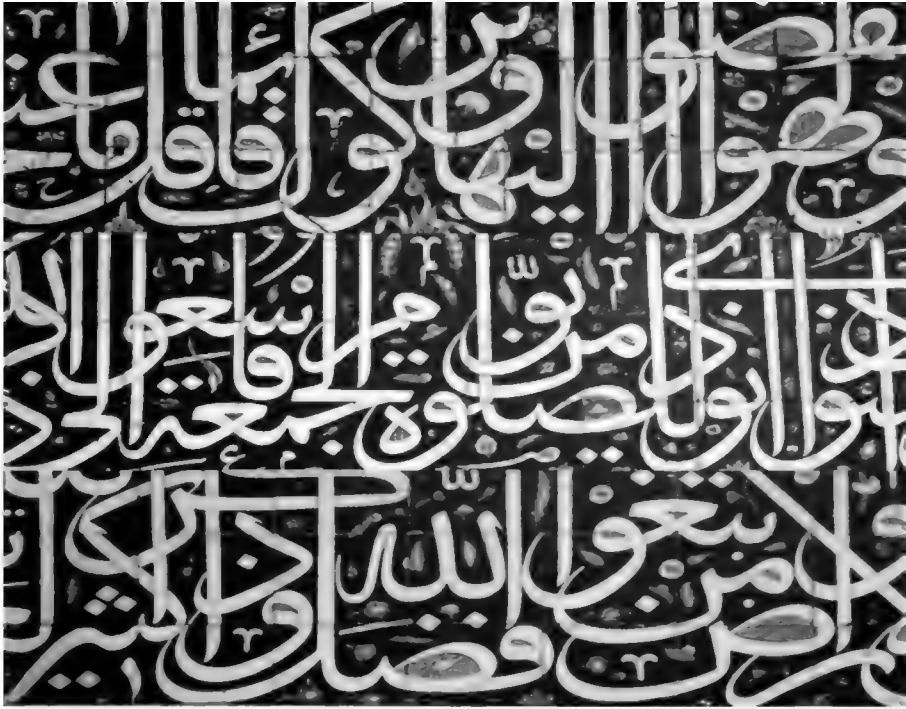 انفضوا اليها وتركوك قائما قل ما عند
امنوا اذا نودى للصلوة من يوم الجمعة فاسعوا الى
الارض وابتغوا من فضل الله واذكروا كثيرا